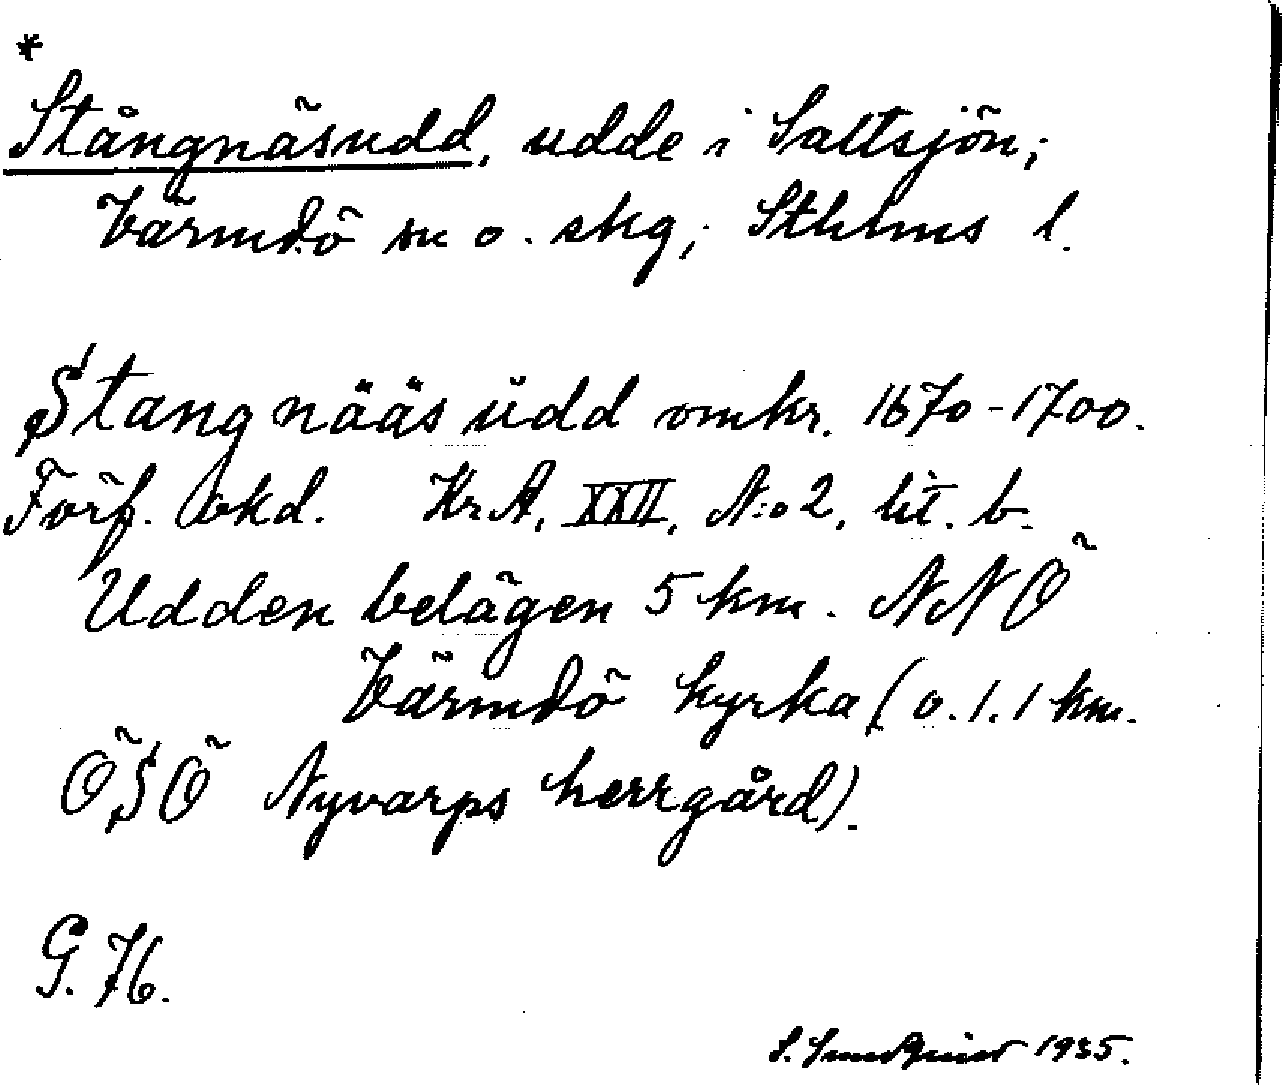 *
Stångnäsudd, udde i Saltsjön;
Värmdö sn o. skg; Sthlms l.
Stangnääs üdd omkr. 1670-1700.
Förf. okd. KrA, XXII, N:o 2, lit. b.
Udden belägen 5 km. NNÖ
Värmdö kyrka (o. 1.1 km.
ÖSÖ Nyvarps herrgård).
G. 76.
S. 1935.